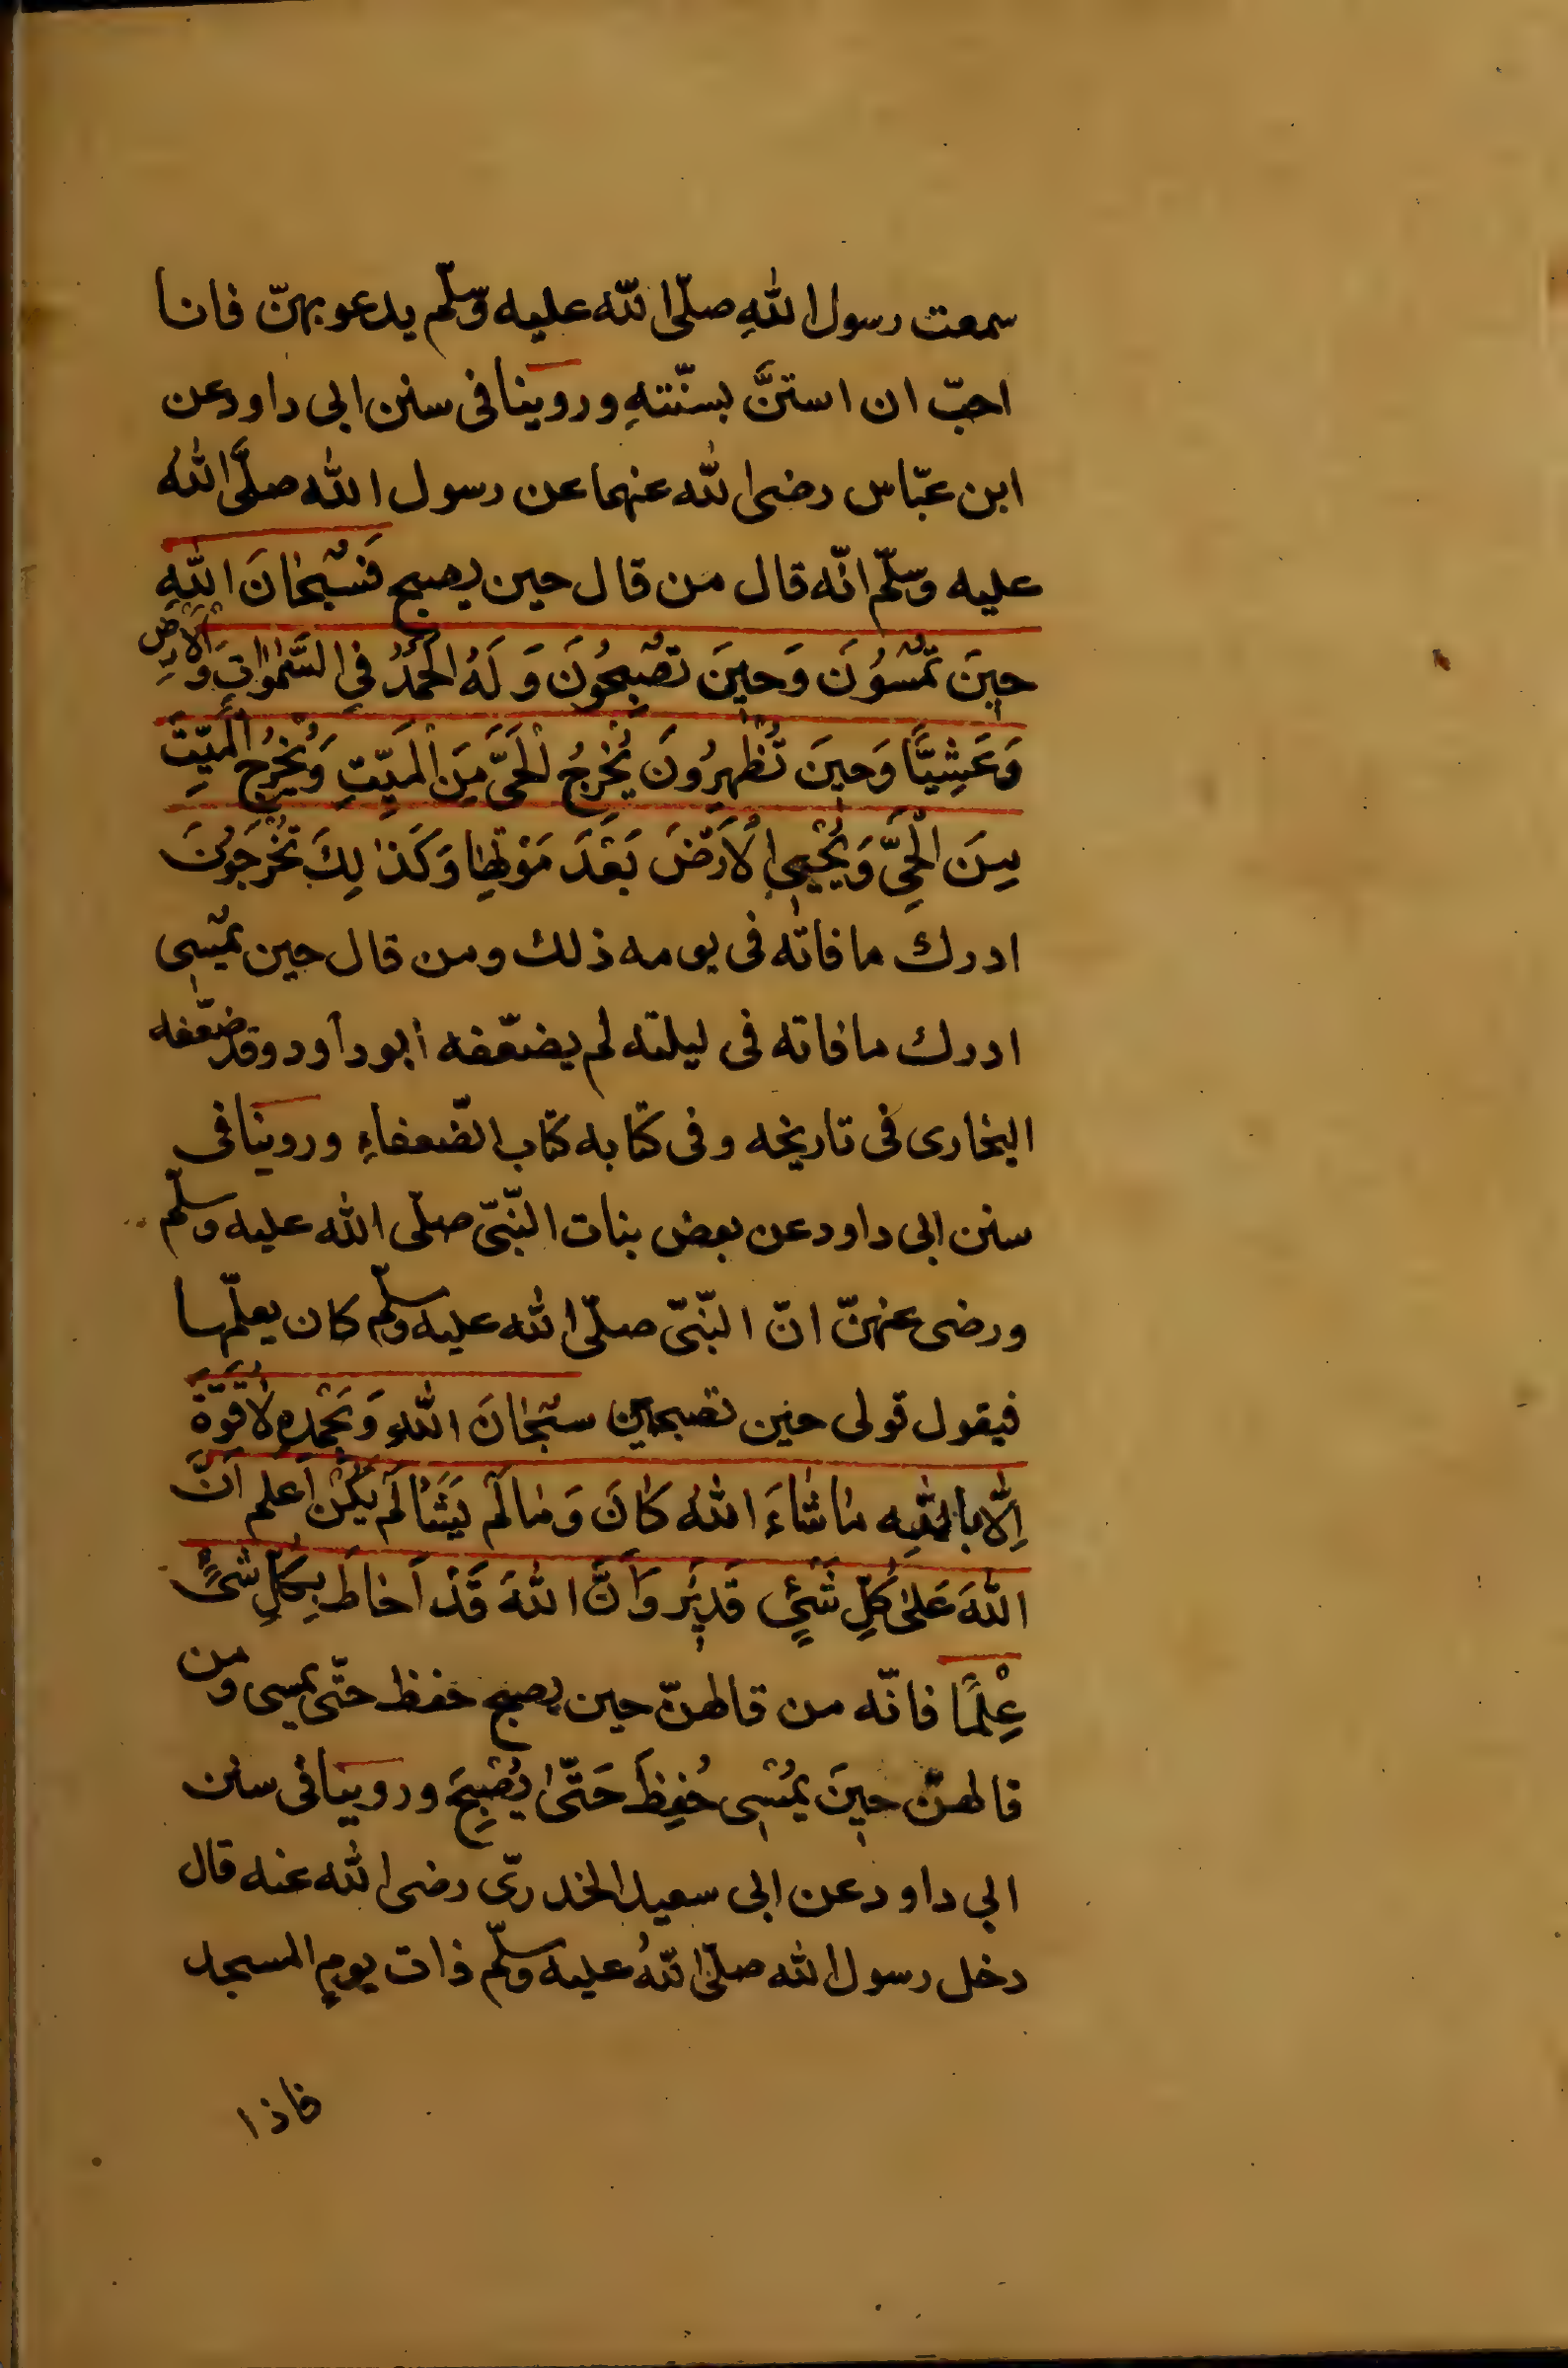 سمعت رسول اللهِ صلّى الله عليه وسّلم يدعو بهنّ فانا
احبّ ان استنَّ بسنّتهِ وروينا فى سنن ابى داود عن
ابن عبّاس رضى الله عنهما عن رسول الله صلَّى اللهُ
عليه وسلّم انّه قال من قال حين يصبح فَسُبْحَانَ اللهِ
حِينَ تُمْسُونَ وَحِينَ تُصْبِحُونَ وَلَهُ الْحَمْدُ فِي السَّمٰوَاتِ وَالْاَرْضِ
وَعَشِيًّا وَحِينَ تُظْهِرُونَ يُخْرِجُ الْحَىَّ مِنَ الْمَيِّتِ وَيُخْرِجُ الْمَيِّتَ
مِنَ الْحَىِّ وَيُحْيِى الْاَرْضَ بَعْدَ مَوْتِهَا وَكَذٰلِكَ تُخْرَجُونَ
ادرك ما فاته فى يومه ذلك ومن قال حين يمْسِى
ادرك ما فاته فى ليلته لم يضعّفه ابو داود وقد ضعّفه
البخارى فى تاريخه وفى كتابه كتاب الضّعفاءِ وروينا فى
سنن ابى داود عن بعض بنات النّبىّ صلّى الله عليه وسلّم
ورضى عنهنّ انّ النّبىّ صلّى الله عليه وسلّم كان يعلّمها
فيقول قولى حين تصبحين سبْحَانَ اللهِ وَبِحَمْدِهِ لَا قُوَّةَ
اِلَّا بِاللهِ مَا شَاءَ اللهُ كَانَ وَمَا لَمْ يَشَأْ لَمْ يَكُنْ اَعلم اَنَّ
اللهَ عَلىٰ كُلِّ شَىْءٍ قَدِيرٌ وَاَنَّ اللهَ قَدْ اَحَاطَ بِكُلِّ شَىْءٍ
عِلْمًا فانّه من قالهنّ حين يصبح حفظ حتّى يمسى ومن
قالهنّ حِينَ يُمْسِى حُفِظَ حَتّىٰ يُصْبِحَ وروينا فى سنن
ابى داود عن ابى سعيد الخدرىّ رضى الله عنه قال
دخل رسول الله صلّى اللهُ عليه وسلّم ذات يومٍ المسجد
فاذا